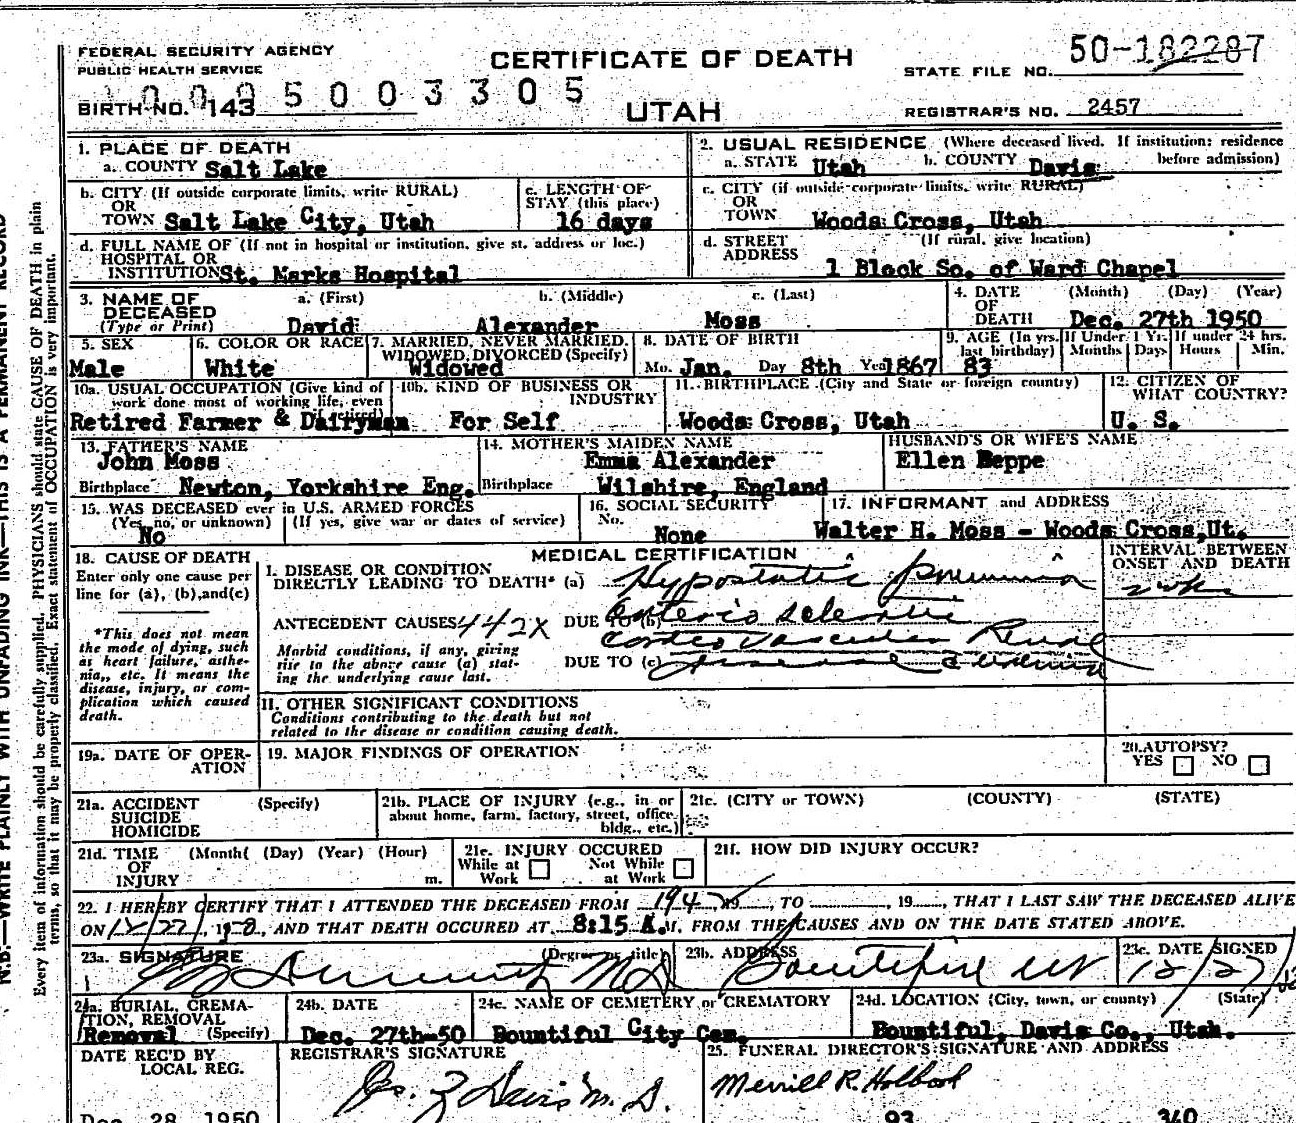 FEDERAL SECURITY AGENCY
PUBLIC HEALTH SERVICE
CERTIFICATE OF DEATH
UTAH
STATE FILE NO. 50-182287
BIRTH NO. 143
0095003305
REGISTRAR'S NO. 2457
1. PLACE OF DEATH
a. COUNTY Salt Lake
2. USUAL RESIDENCE (Where deceased lived. If institution: residence before admission)
a. STATE Utah b. COUNTY Davis
b. CITY (If outside corporate limits, write RURAL)
OR
TOWN Salt Lake City, Utah
c. LENGTH OF STAY (this place)
16 days
c. CITY (if outside corporate limits, write RURAL)
OR
TOWN Woods Cross, Utah
d. FULL NAME OF (If not in hospital or institution, give st. address or loc.)
HOSPITAL OR
INSTITUTION St. Marks Hospital
d. STREET ADDRESS (If rural, give location)
1 Block So. of Ward Chapel
3. NAME OF DECEASED
(Type or Print)
a. (First) b. (Middle) c. (Last)
David Alexander Moss
4. DATE OF DEATH (Month) (Day) (Year)
Dec. 27th 1950
5. SEX
Male
6. COLOR OR RACE
White
7. MARRIED, NEVER MARRIED, WIDOWED, DIVORCED (Specify)
Widowed
8. DATE OF BIRTH
Mo. Jan. Day 8th Yea 1867
9. AGE (In yrs. last birthday)
83
If Under 1 Yr. Months Days
If under 24 hrs. Hours Min.
10a. USUAL OCCUPATION (Give kind of work done most of working life, even if retired)
Retired Farmer & Dairyman
10b. KIND OF BUSINESS OR INDUSTRY
For Self
11. BIRTHPLACE (City and State or foreign country)
Woods Cross, Utah
12. CITIZEN OF WHAT COUNTRY?
U. S.
13. FATHER'S NAME
John Moss
Birthplace Newton, Yorkshire Eng.
14. MOTHER'S MAIDEN NAME
Emma Alexander
Birthplace Wilshire, England
HUSBAND'S OR WIFE'S NAME
Ellen Beppe
15. WAS DECEASED ever in U.S. ARMED FORCES
(Yes, no, or unknown) (If yes, give war or dates of service)
No
16. SOCIAL SECURITY No.
None
17. INFORMANT and ADDRESS
Walter H. Moss - Woods Cross, Ut.
18. CAUSE OF DEATH
Enter only one cause per line for (a), (b), and (c)
*This does not mean the mode of dying, such as heart failure, asthenia,, etc. It means the disease, injury, or complication which caused death.
MEDICAL CERTIFICATION
INTERVAL BETWEEN ONSET AND DEATH
I. DISEASE OR CONDITION
DIRECTLY LEADING TO DEATH* (a) Hypostatic pneumonia
ANTECEDENT CAUSES 442X DUE TO (b)
Cardio Vascular Renal
Morbid conditions, if any, giving rise to the above cause (a) stating the underlying cause last.
DUE TO (c)
II. OTHER SIGNIFICANT CONDITIONS
Conditions contributing to the death but not related to the disease or condition causing death.
19a. DATE OF OPERATION
19. MAJOR FINDINGS OF OPERATION
20. AUTOPSY?
YES NO
21a. ACCIDENT SUICIDE HOMICIDE (Specify)
21b. PLACE OF INJURY (e.g., in or about home, farm, factory, street, office, bldg., etc.)
21c. (CITY or TOWN) (COUNTY) (STATE)
21d. TIME OF INJURY (Month( (Day) (Year) (Hour) m.
21e. INJURY OCCURED
While at Work Not While at Work
21f. HOW DID INJURY OCCUR?
22. I HEREBY CERTIFY THAT I ATTENDED THE DECEASED FROM 194 19, TO , 19 , THAT I LAST SAW THE DECEASED ALIVE
ON 12/27/, 1950, AND THAT DEATH OCCURED AT 8:15 A.M, FROM THE CAUSES AND ON THE DATE STATED ABOVE.
23a. SIGNATURE (Degree or title) MD
23b. ADDRESS
Bountiful Ut
23c. DATE SIGNED
12/27/
24a. BURIAL, CREMATION, REMOVAL (Specify)
Removal
24b. DATE
Dec. 27th-50
24c. NAME OF CEMETERY or CREMATORY
Bountiful City Cem.
24d. LOCATION (City, town, or county) (State)
Bountiful, Davis Co., Utah.
DATE REC'D BY LOCAL REG.
Dec 28 1950
REGISTRAR'S SIGNATURE
25. FUNERAL DIRECTOR'S SIGNATURE AND ADDRESS
Merrill R. Holbook
93 340
N.B.—WRITE PLAINLY WITH UNFADING INK—THIS IS A PERMANENT RECORD
Every item of information should be carefully supplied. PHYSICIANS should state CAUSE OF DEATH in plain
terms, so that it may be properly classified. Exact statement of OCCUPATION is very important.